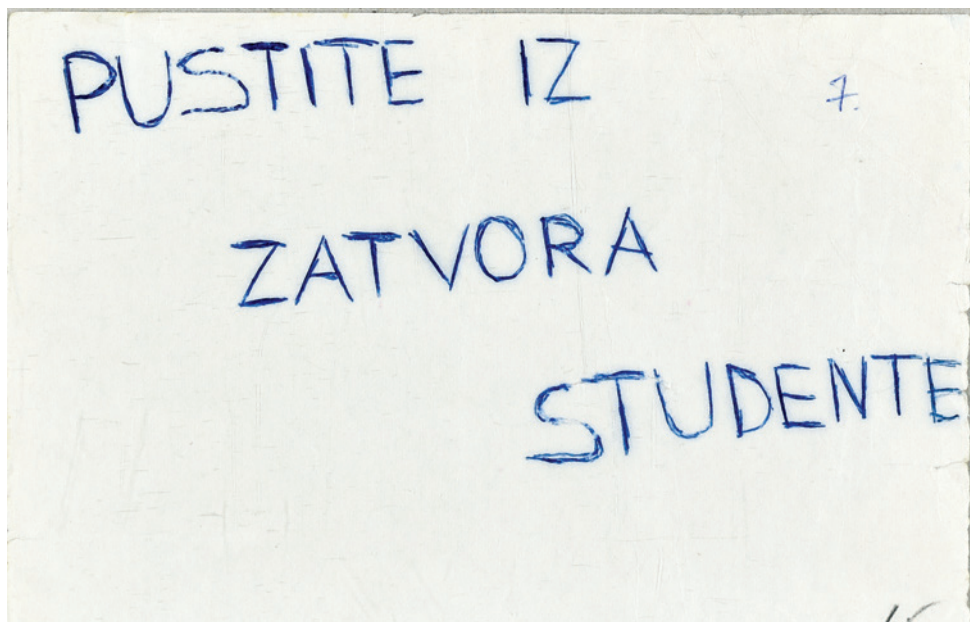 PUSTITE IZ
7.
ZATVORA
STUDENTE